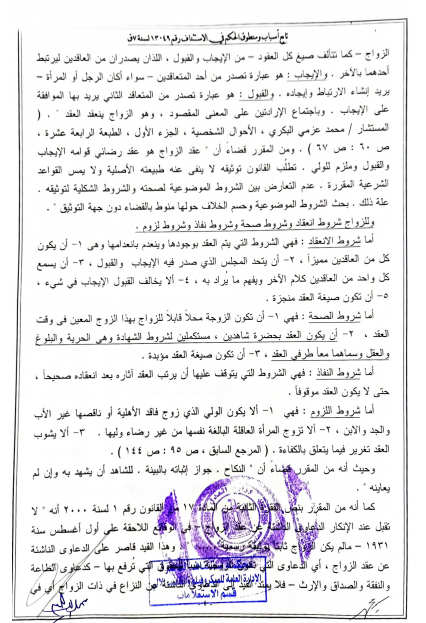 تابع أسباب ومنطوق الحكم في الاستئناف رقم ١٣٠٤٩ لسنة ٧ق
الزواج – كما تتألف صيغ كل العقود – من الإيجاب والقبول ، اللذان يصدران من العاقدين ليرتبط
أحدهما بالآخر . والإيجاب : هو عبارة تصدر من أحد المتعاقدين – سواء أكان الرجل أو المرأة –
يريد إنشاء الارتباط وإيجاده . والقبول : هو عبارة تصدر من المتعاقد الثاني يريد بها الموافقة
على الإيجاب . وباجتماع الإرادتين على المعنى المقصود ، وهو الزواج ينعقد العقد " . (
المستشار / محمد عزمي البكري ، الأحوال الشخصية ، الجزء الأول ، الطبعة الرابعة عشرة ،
ص ٦٠ : ص ٦٧ ) . ومن المقرر قضاءً أن " عقد الزواج هو عقد رضائي قوامه الإيجاب
والقبول وملزم للولي . تطلُب القانون توثيقه لا ينفى عنه طبيعته الأصلية ولا يمس القواعد
الشرعية المقررة . عدم التعارض بين الشروط الموضوعية لصحته والشروط الشكلية لتوثيقه .
علة ذلك . بحث الشروط الموضوعية وحسم الخلاف حولها منوط بالقضاء دون جهة التوثيق " .
وللزواج شروط انعقاد وشروط صحة وشروط نفاذ وشروط لزوم .
أما شروط الانعقاد : فهي الشروط التي يتم العقد بوجودها وينعدم بانعدامها وهى ١- أن يكون
كل من العاقدين مميزاً ، ٢- أن يتحد المجلس الذي صدر فيه الإيجاب والقبول ، ٣- أن يسمع
كل واحد من العاقدين كلام الآخر ويفهم ما يُراد به ، ٤- ألا يخالف القبول الإيجاب في شيء ،
٥- أن تكون صيغة العقد منجزة .
أما شروط الصحة : فهي ١- أن تكون الزوجة محلاً قابلاً للزواج بهذا الزوج المعين فى وقت
العقد ، ٢- أن يكون العقد بحضرة شاهدين ، مستكملين لشروط الشهادة وهى الحرية والبلوغ
والعقل وسماهما معاً طرفي العقد ، ٣- أن تكون صيغة العقد مؤبدة .
أما شروط النفاذ : فهي الشروط التي يتوقف عليها أن يرتب العقد آثاره بعد انعقاده صحيحاً ،
حتى لا يكون العقد موقوفاً .
أما شروط اللزوم : فهي ١- ألا يكون الولي الذي زوج فاقد الأهلية أو ناقصها غير الأب
والجد والابن ، ٢- ألا تزوج المرأة العاقلة البالغة نفسها من غير رضاء وليها . ٣- ألا يشوب
العقد تغرير فيما يتعلق بالكفاءة . ( المرجع السابق ، ص ٩٥ : ص ١٤٤ ) .
وحيث أنه من المقرر قضاءً أن " النكاح . جواز إثباته بالبينة . للشاهد أن يشهد به وإن لم
يعاينه " .
كما أنه من المقرر بنص الفقرة الثانية من المادة ١٧ من القانون رقم ١ لسنة ٢٠٠٠ أنه " لا
تقبل عند الإنكار الدعاوى الناشئة عن عقد الزواج - في الوقائع اللاحقة على أول أغسطس سنة
١٩٣١ - مالم يكن الزواج ثابتاً بوثيقة رسمية وهذا القيد قاصر على الدعاوى الناشئة
عن عقد الزواج ، أي الدعاوى التي التي تُرفع بها – كدعاوى الطاعة
والنفقة والصداق والإرث – فلا يمتد القيد إلى الدعاوى الناشئة عن النزاع في ذات الزواج أي في
قسم الاستعلامات